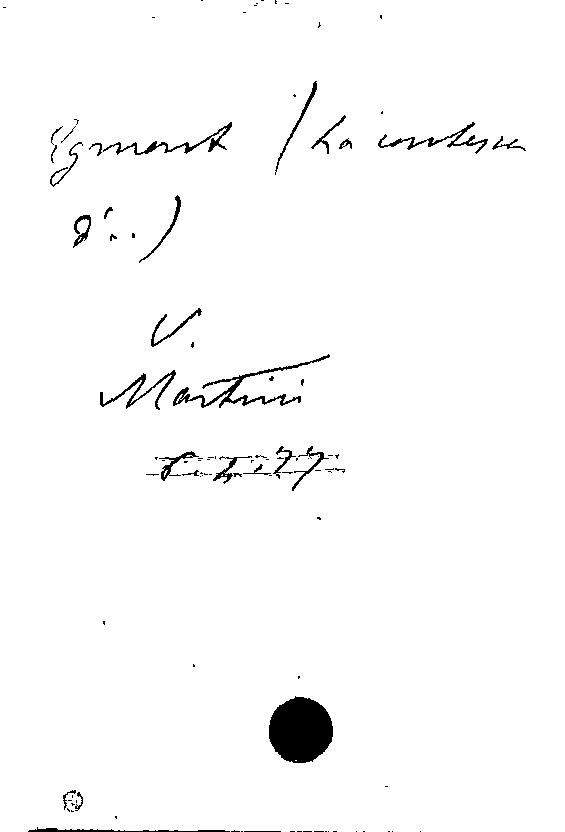 Egmont (La contessa
d'..)
V.
Martini